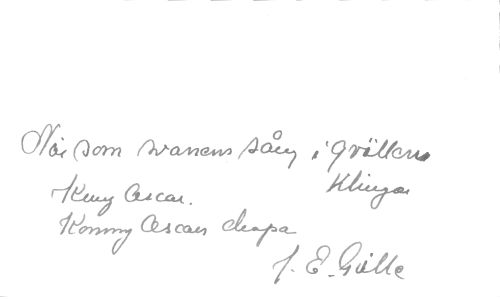 När som svanens sång i qvällens
Klingar
King Oscar.
Kommy Oscars chapa
J. E. Gille